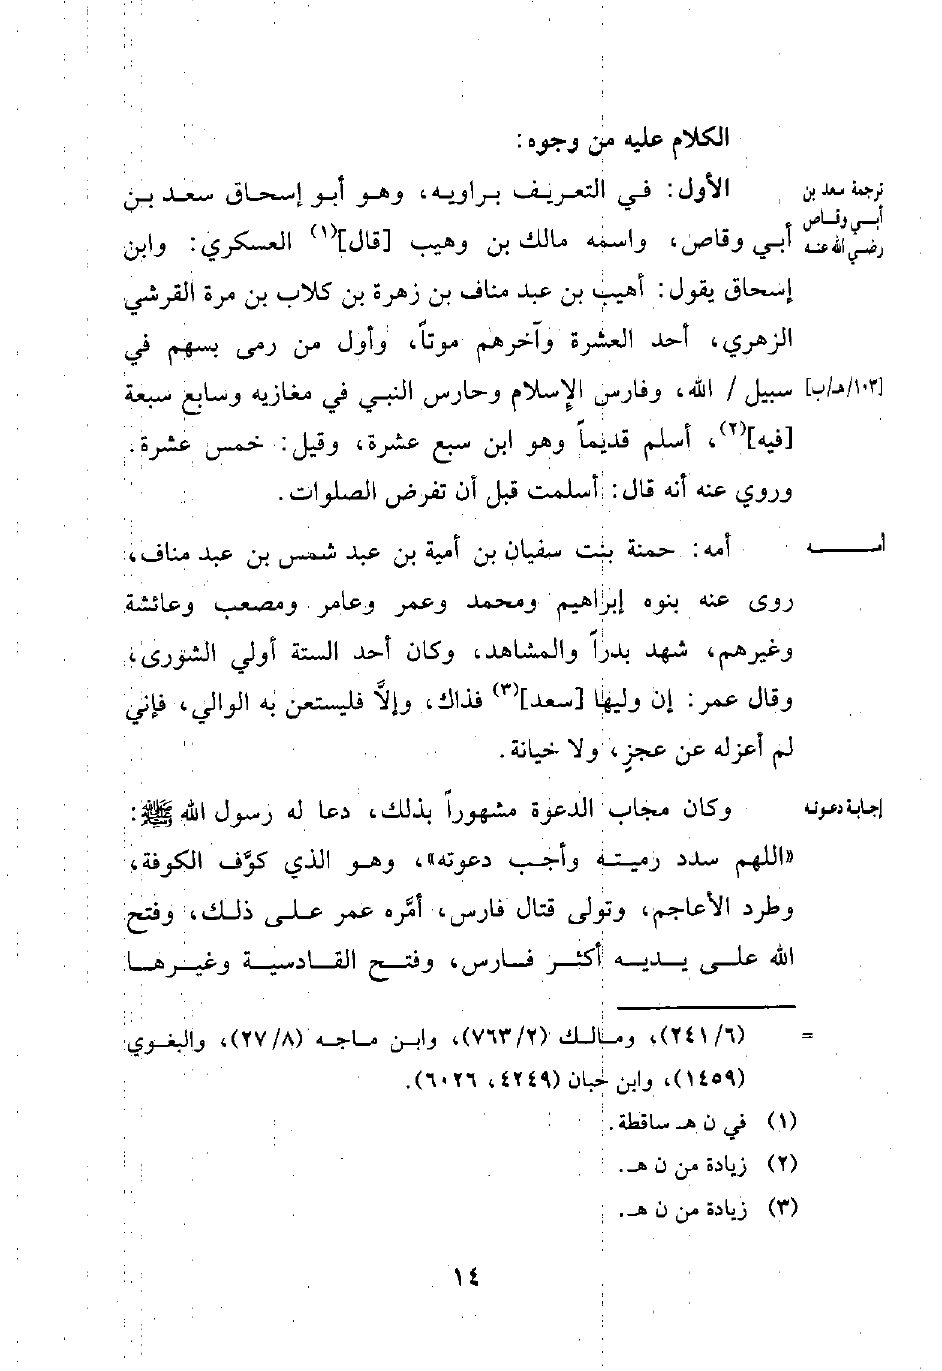 الكلام عليه من وجوه:
ترجمة سعد بن
أبي وقاص
رضي الله عنه
الأول: في التعريف براويه، وهو أبو إسحاق سعد بن
أبي وقاص، واسمه مالك بن وهيب [قال](١) العسكري: وابن
إسحاق يقول: أهيب بن عبد مناف بن زهرة بن كلاب بن مرة القرشي
الزهري، أحد العشرة وآخرهم موتاً، وأول من رمى بسهم في
[١٠٣/هـ/ب] سبيل / الله، وفارس الإسلام وحارس النبي في مغازيه وسابع سبعة
[فيه](٢)، أسلم قديماً وهو ابن سبع عشرة، وقيل: خمس عشرة.
وروي عنه أنه قال: أسلمت قبل أن تفرض الصلوات.
أمه: حمنة بنت سفيان بن أمية بن عبد شمس بن عبد مناف،
روى عنه بنوه إبراهيم ومحمد وعمر وعامر ومصعب وعائشة
وغيرهم، شهد بدراً والمشاهد، وكان أحد الستة أولي الشورى،
وقال عمر: إن وليها [سعد](٣) فذاك، وإلاَّ فليستعن به الوالي، فإني
لم أعزله عن عجزٍ، ولا خيانة.
إجابة دعوته
وكان مجاب الدعوة مشهوراً بذلك، دعا له رسول الله ﷺ:
«اللهم سدد رميته وأجب دعوته»، وهو الذي كوَّف الكوفة،
وطرد الأعاجم، وتولى قتال فارس، أمَّره عمر على ذلك، وفتح
الله على يديه أكثر فارس، وفتح القادسية وغيرها
= (٢٤١/٦)، ومالك (٧٦٣/٢)، وابن ماجه (٢٧/٨)، والبغوي
(١٤٥٩)، وابن حبان (٤٢٤٩، ٦٠٢٦).
(١) في ن هـ ساقطة.
(٢) زيادة من ن هـ.
(٣) زيادة من ن هـ.
١٤